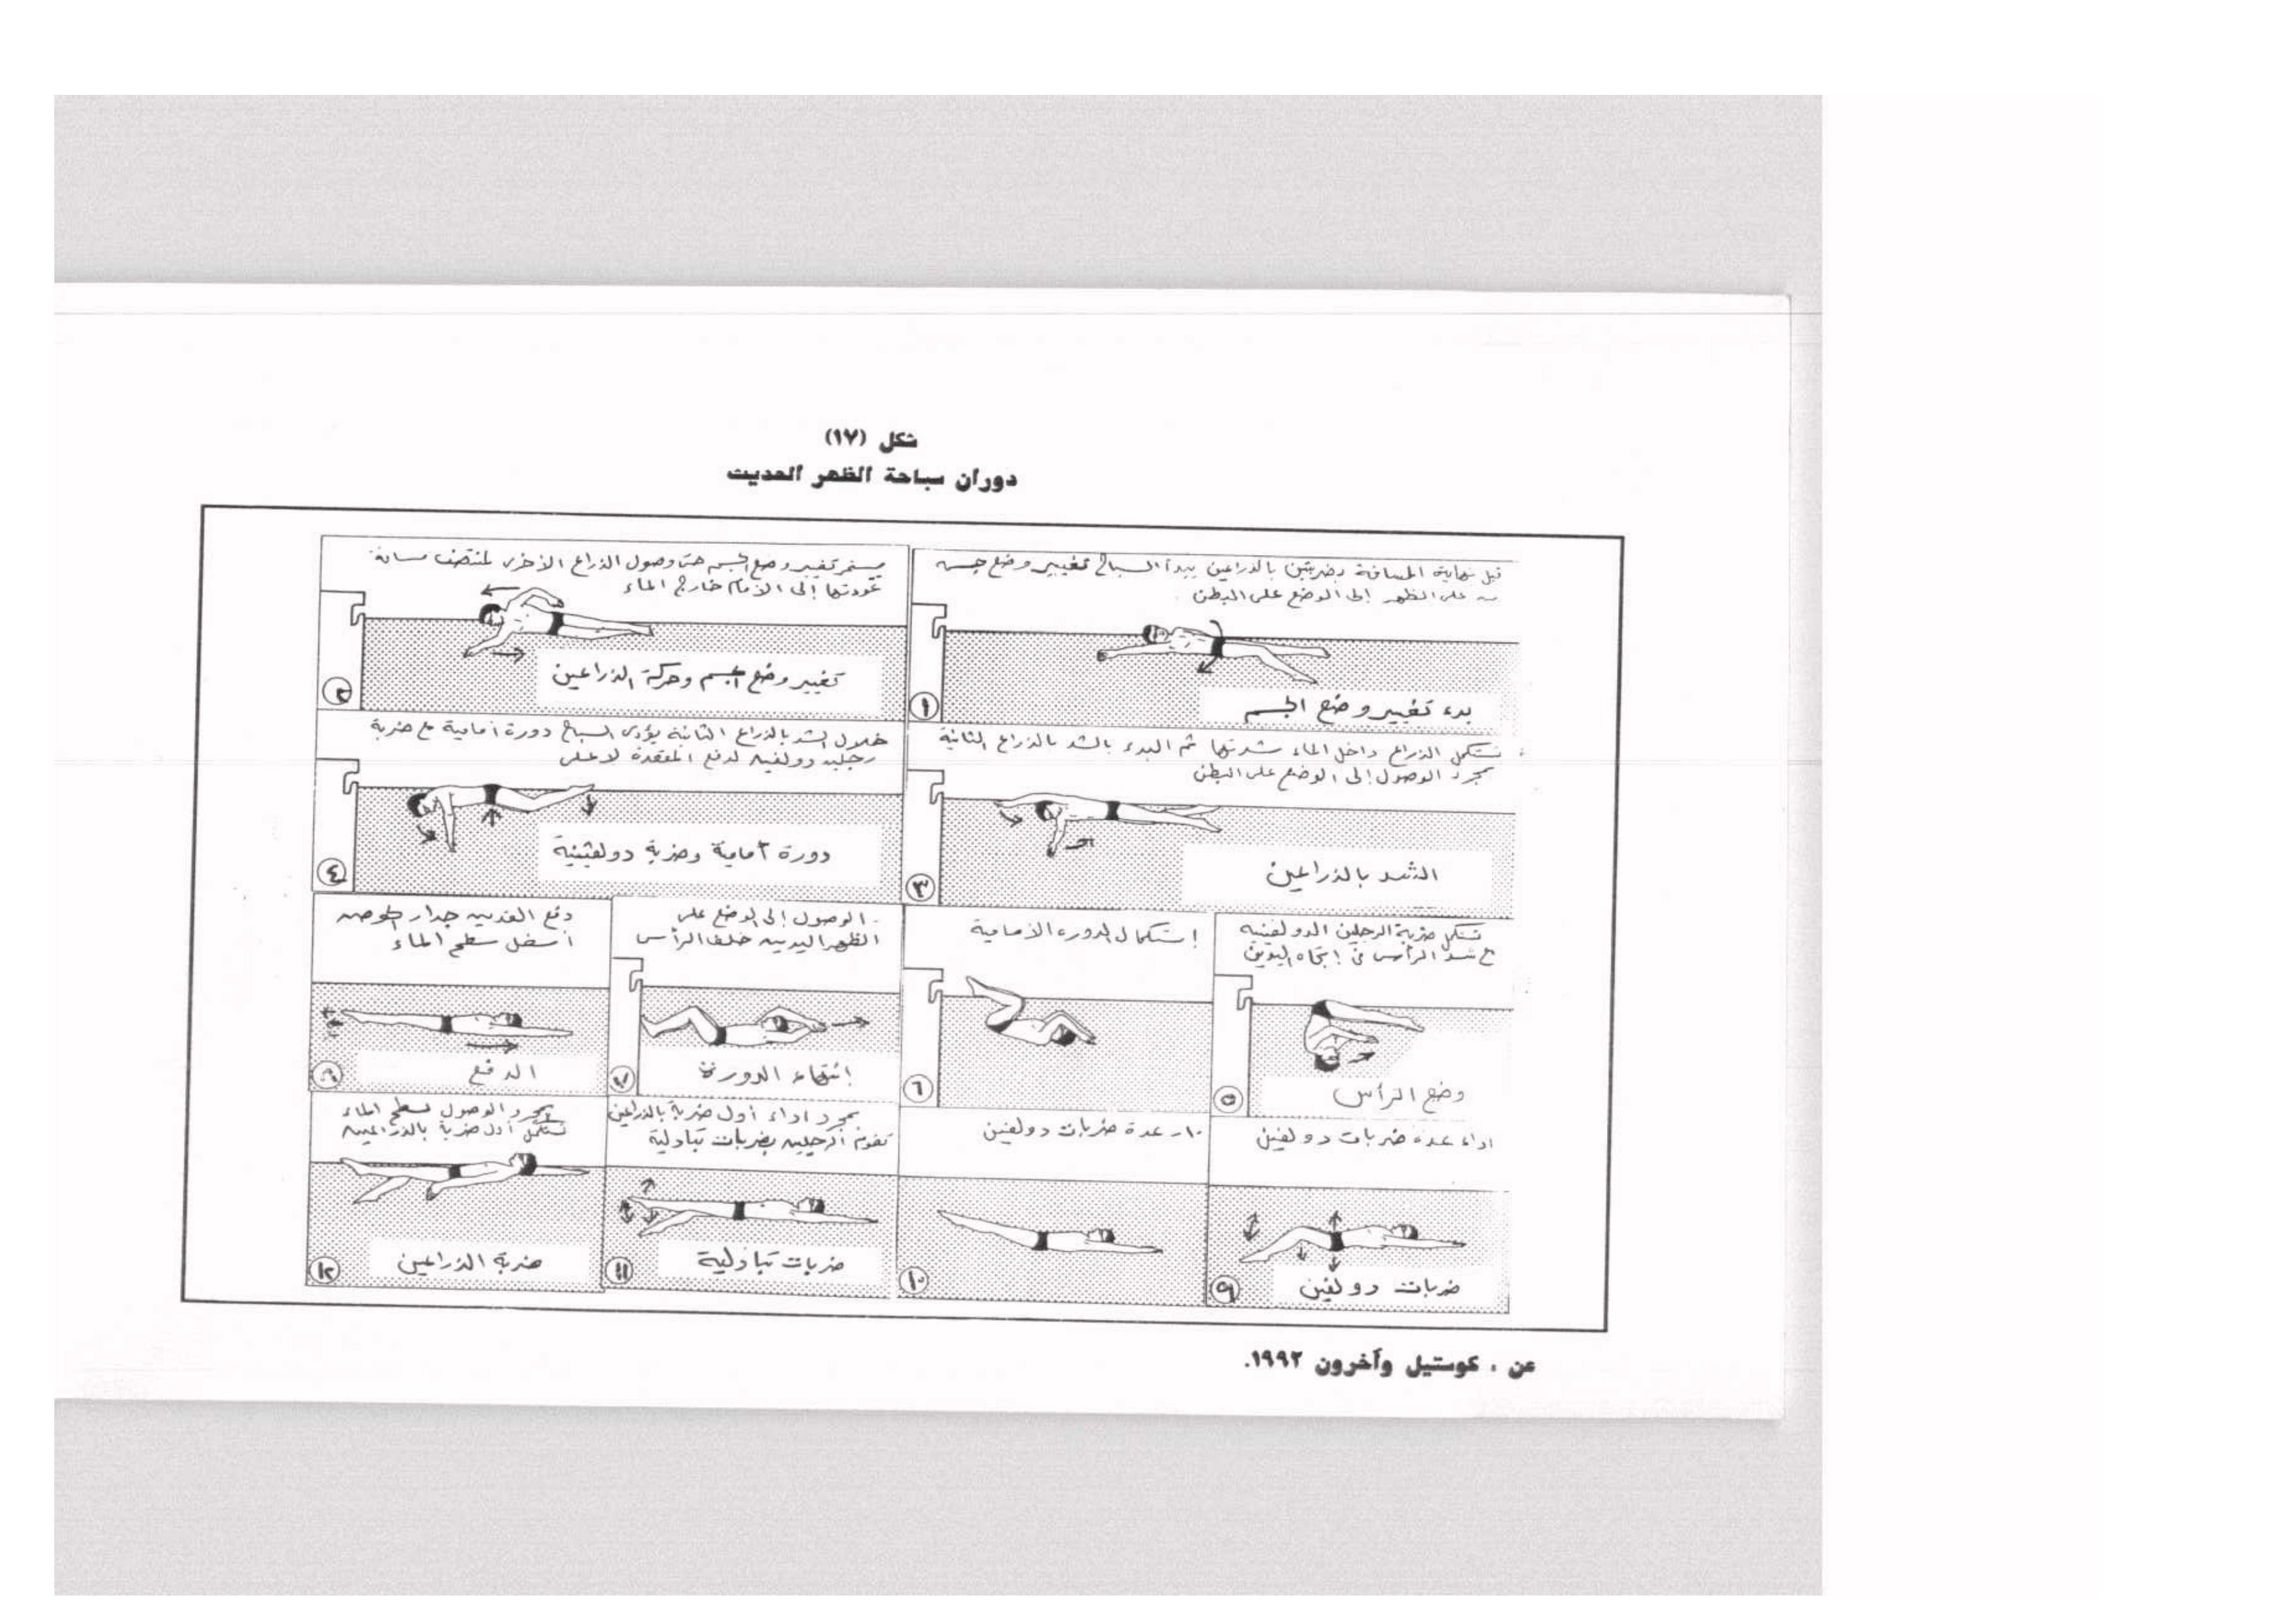 شكل (١٧)
دوران سباحة الظهر الحديث
قبل نهاية المسافة بضربتين بالذراعين يبدأ السباح تغيير وضع جسمه
من على الظهر إلى الوضع على البطن
بدء تغيير وضع الجسم
١
يستمر تغيير وضع الجسم حتى وصول الذراع الأخرى لمنتصف مسافة
عودتها إلى الأمام خارج الماء
تغيير وضع الجسم وحركة الذراعين
٢
تستكمل الذراع داخل الماء شدتها ثم البدء بالشد بالذراع الثانية
بمجرد الوصول إلى الوضع على البطن
الشد بالذراعين
٣
خلال الشد بالذراع الثانية يؤدى السباح دورة أمامية مع ضربة
رجلين دولفين لدفع المقعدة لاعلى
دورة أمامية وضربة دولفينية
٤
تستكمل ضربة الرجلين الدولفينيه
مع شد الرأس فى إتجاه اليدين
وضع الرأس
٥
إستكمال الدوره الأمامية
٦
الوصول إلى الوضع على
الظهر اليدين خلف الرأس
إنتهاء الدورة
٧
دفع القدمين جدار الحوض
أسفل سطح الماء
الدفع
اداء عدة ضربات دولفين
ضربات دولفين
٩
١٠- عدة ضربات دولفين
١٠
بمجرد اداء أول ضربة بالذراعين
تقوم الرجلين بضربات تبادلية
ضربات تبادلية
١١
بمجرد الوصول لسطح الماء
تستكمل أول ضربة بالذراعين
ضربة الذراعين
١٢
عن : كوستيل وآخرون ١٩٩٢.